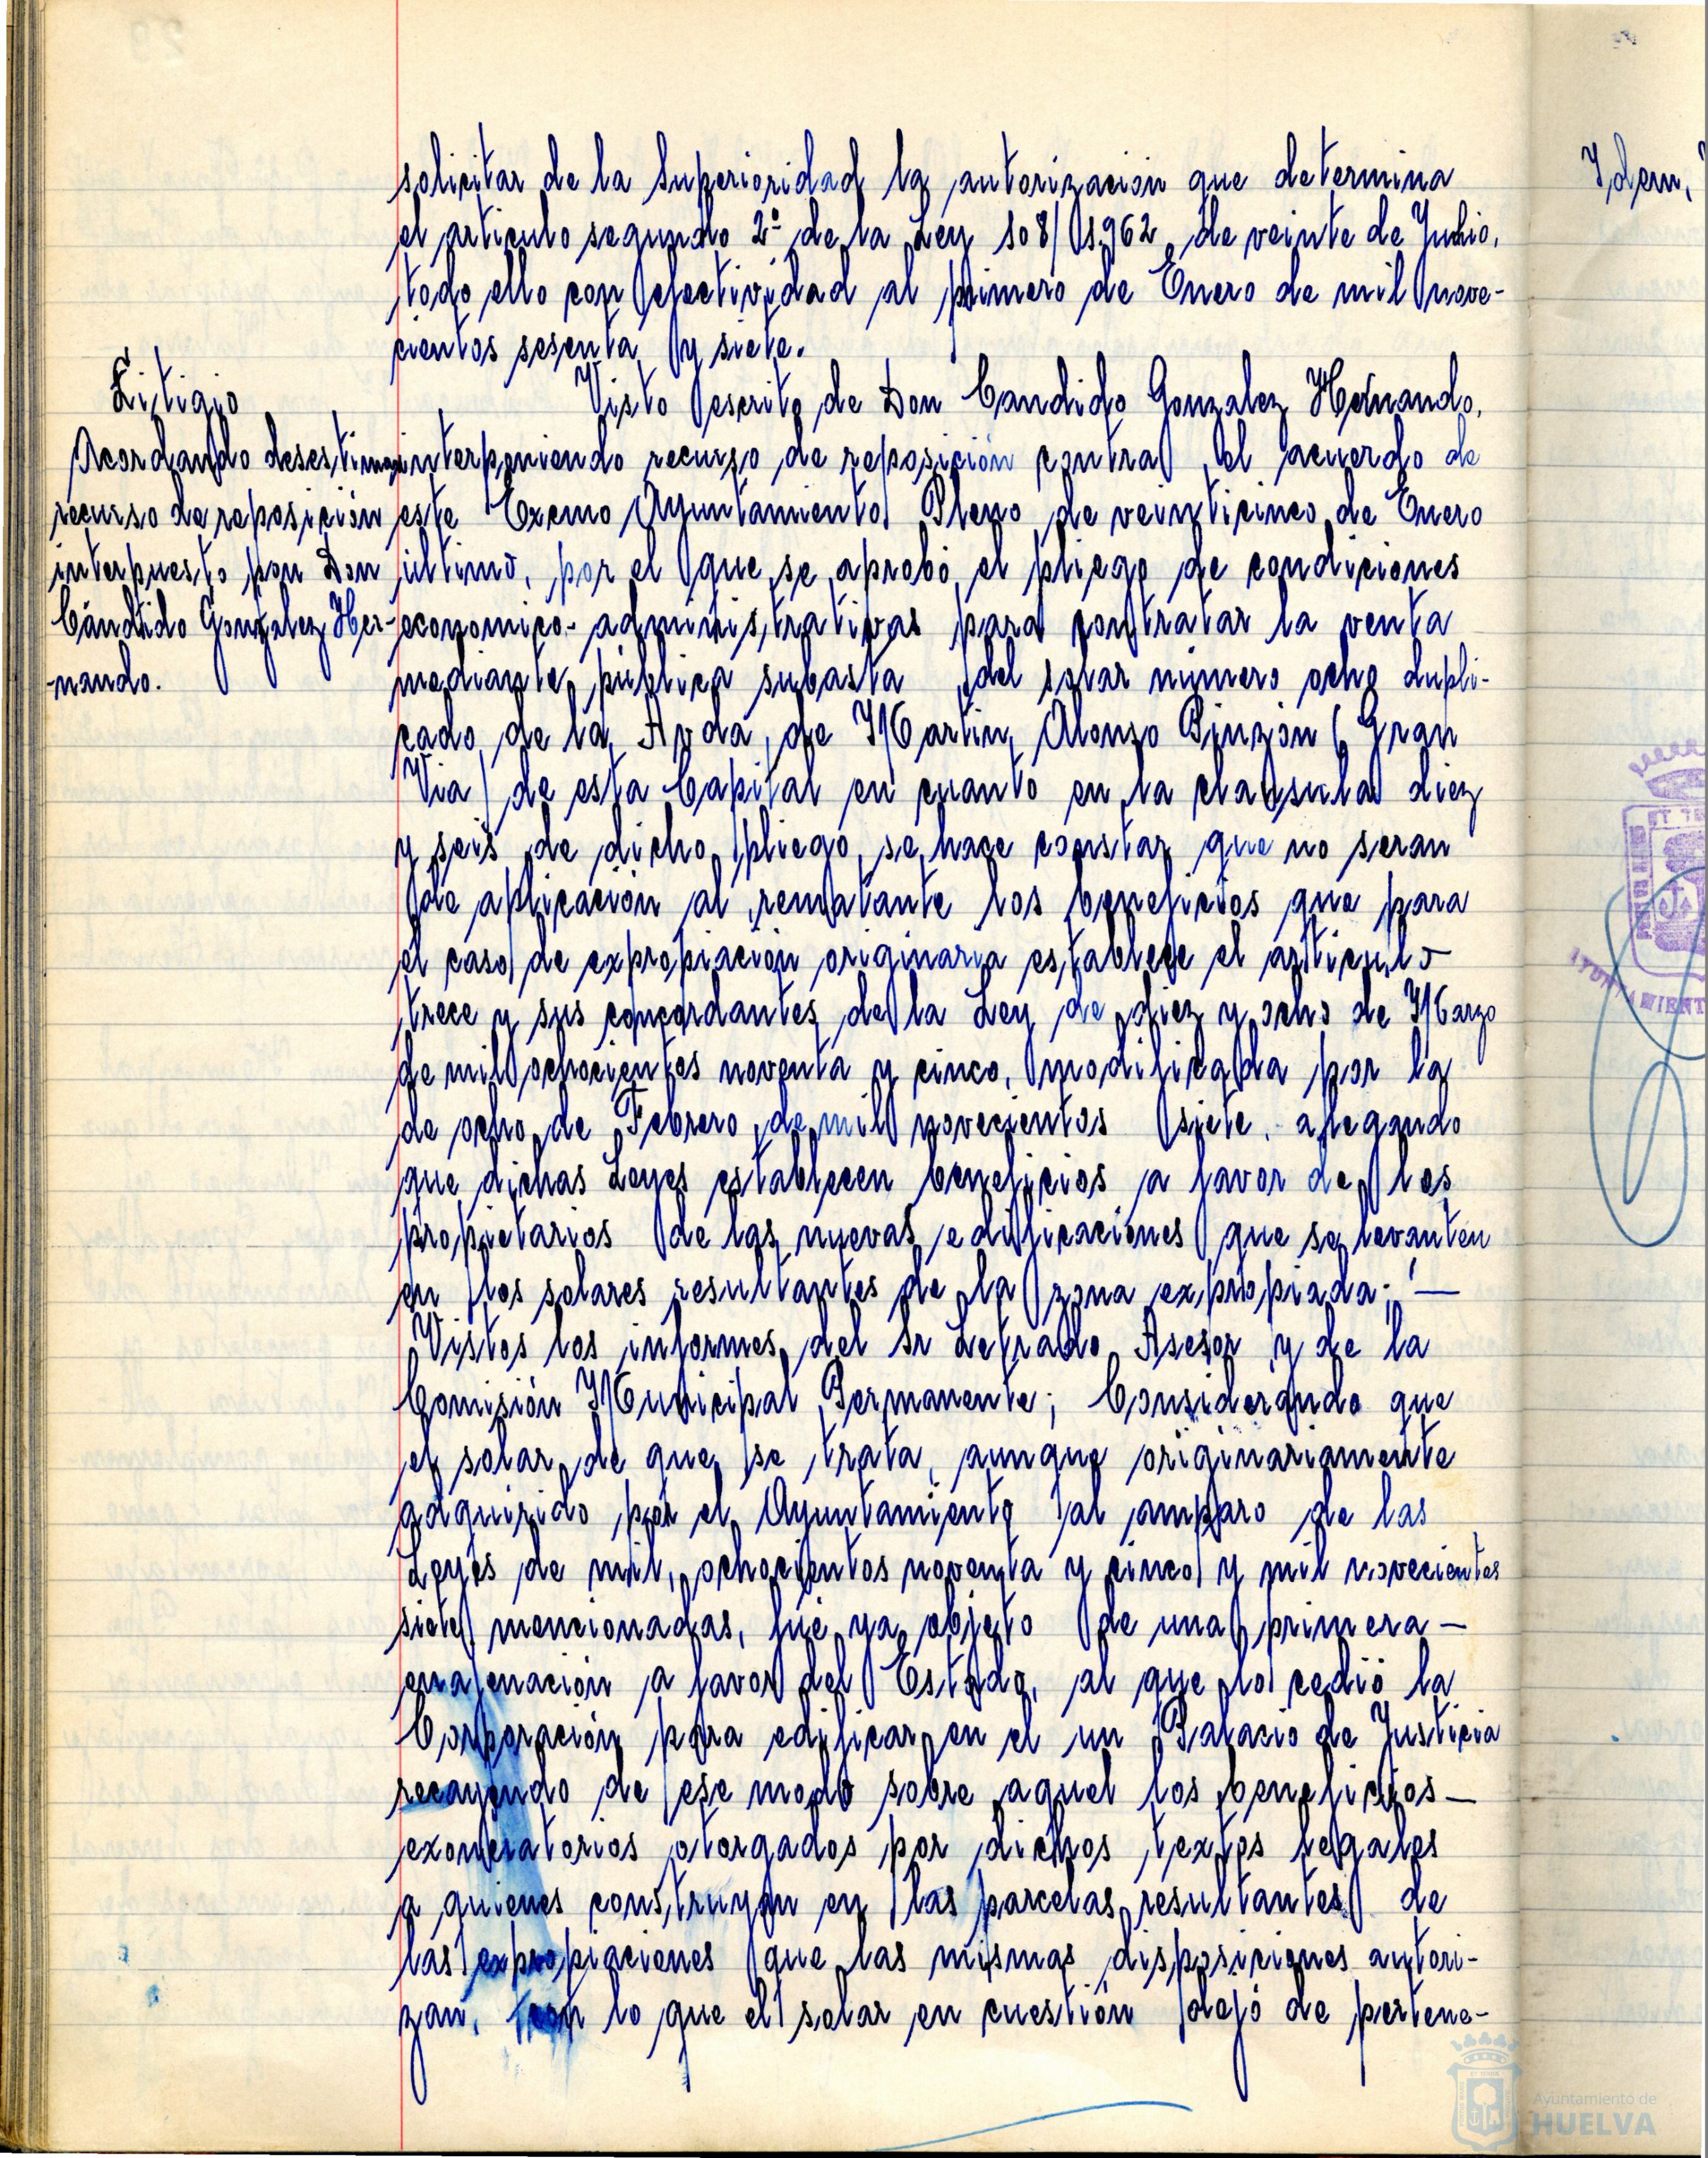 solicitar de la Superioridad la autorización que determina
el articulo segundo 2º de la Ley 108/1.962, de veinte de Junio,
todo ello con efectividad al primero de Enero de mil nove-
cientos sesenta y siete.
Litigio
Acordando desestimar
recurso de reposición
interpuesto por Don
Cándido Gonzalez Her-
-nando.
Visto escrito de Don Candido Gonzalez Hernando,
interponiendo recurso de reposición contra el acuerdo de
este Excmo Ayuntamiento Pleno de veinticinco de Enero
último, por el que se aprobó el pliego de condiciones
economico-administrativas para contratar la venta
mediante pública subasta del solar número ocho dupli-
cado de la Avda, de Martin Alonso Pinzón (Gran
Via) de esta Capital en cuanto en la clausula diez
y seis de dicho pliego, se hace constar que no seran
de aplicación al rematante los beneficios que para
el caso de expropiación originaria establece el articulo
trece y sus concordantes de la Ley de diez y ocho de Marzo
de mil ochocientos noventa y cinco, modificada por la
de ocho de Febrero de mil novecientos siete, alegando
que dichas Leyes establecen beneficios a favor de los
propietarios de las nuevas edificaciones que se levanten
en los solares resultantes de la zona expropiada; —
Vistos los informes del Sr Letrado Asesor y de la
Comisión Municipal Permanente; Considerando que
el solar de que se trata, aunque originariamente
adquirido por el Ayuntamiento al amparo de las
Leyes de mil, ochocientos noventa y cinco y mil novecientos
siete mencionadas, fué ya objeto de una primera —
enajenación a favor del Estado, al que lo cedió la
Corporación para edificar en el un Palacio de Justicia
recayendo de ese modo sobre aquel los beneficios —
exoneratorios otorgados por dichos textos legales
a quienes construyan en las parcelas resultantes de
las expropiaciones que las mismas disposiciones autori-
zan, con lo que el solar en cuestión dejó de pertene-
Idem,
AYUNTAMIENT
Ayuntamiento de
HUELVA